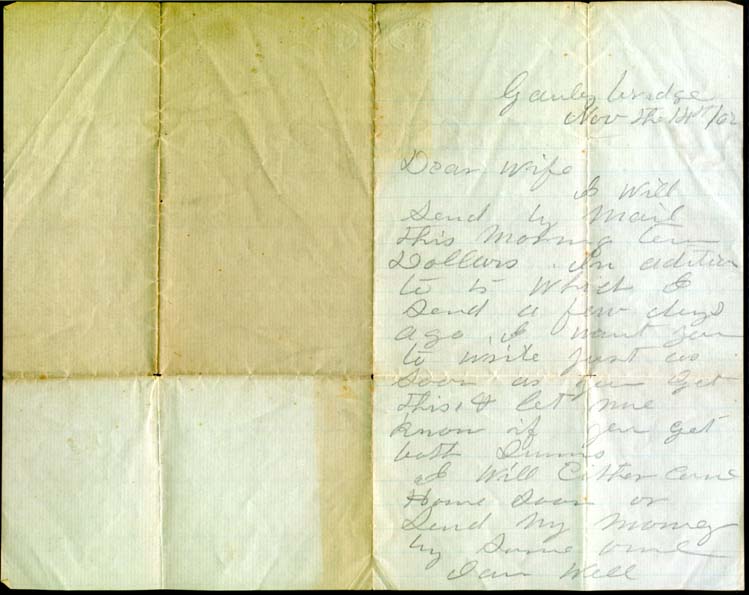 Gauley bridge
Nov the 14th /62
Dear Wife
I Will
Send by Mail
this Morning ten
Dollars in adition
to $5 Which I
Send a few days
ago. I want you
to write just as
soon as you get
this, & let me
know if you get
both Sums
I Will Either come
Home soon or
Send My Money
by Some one
I am Well